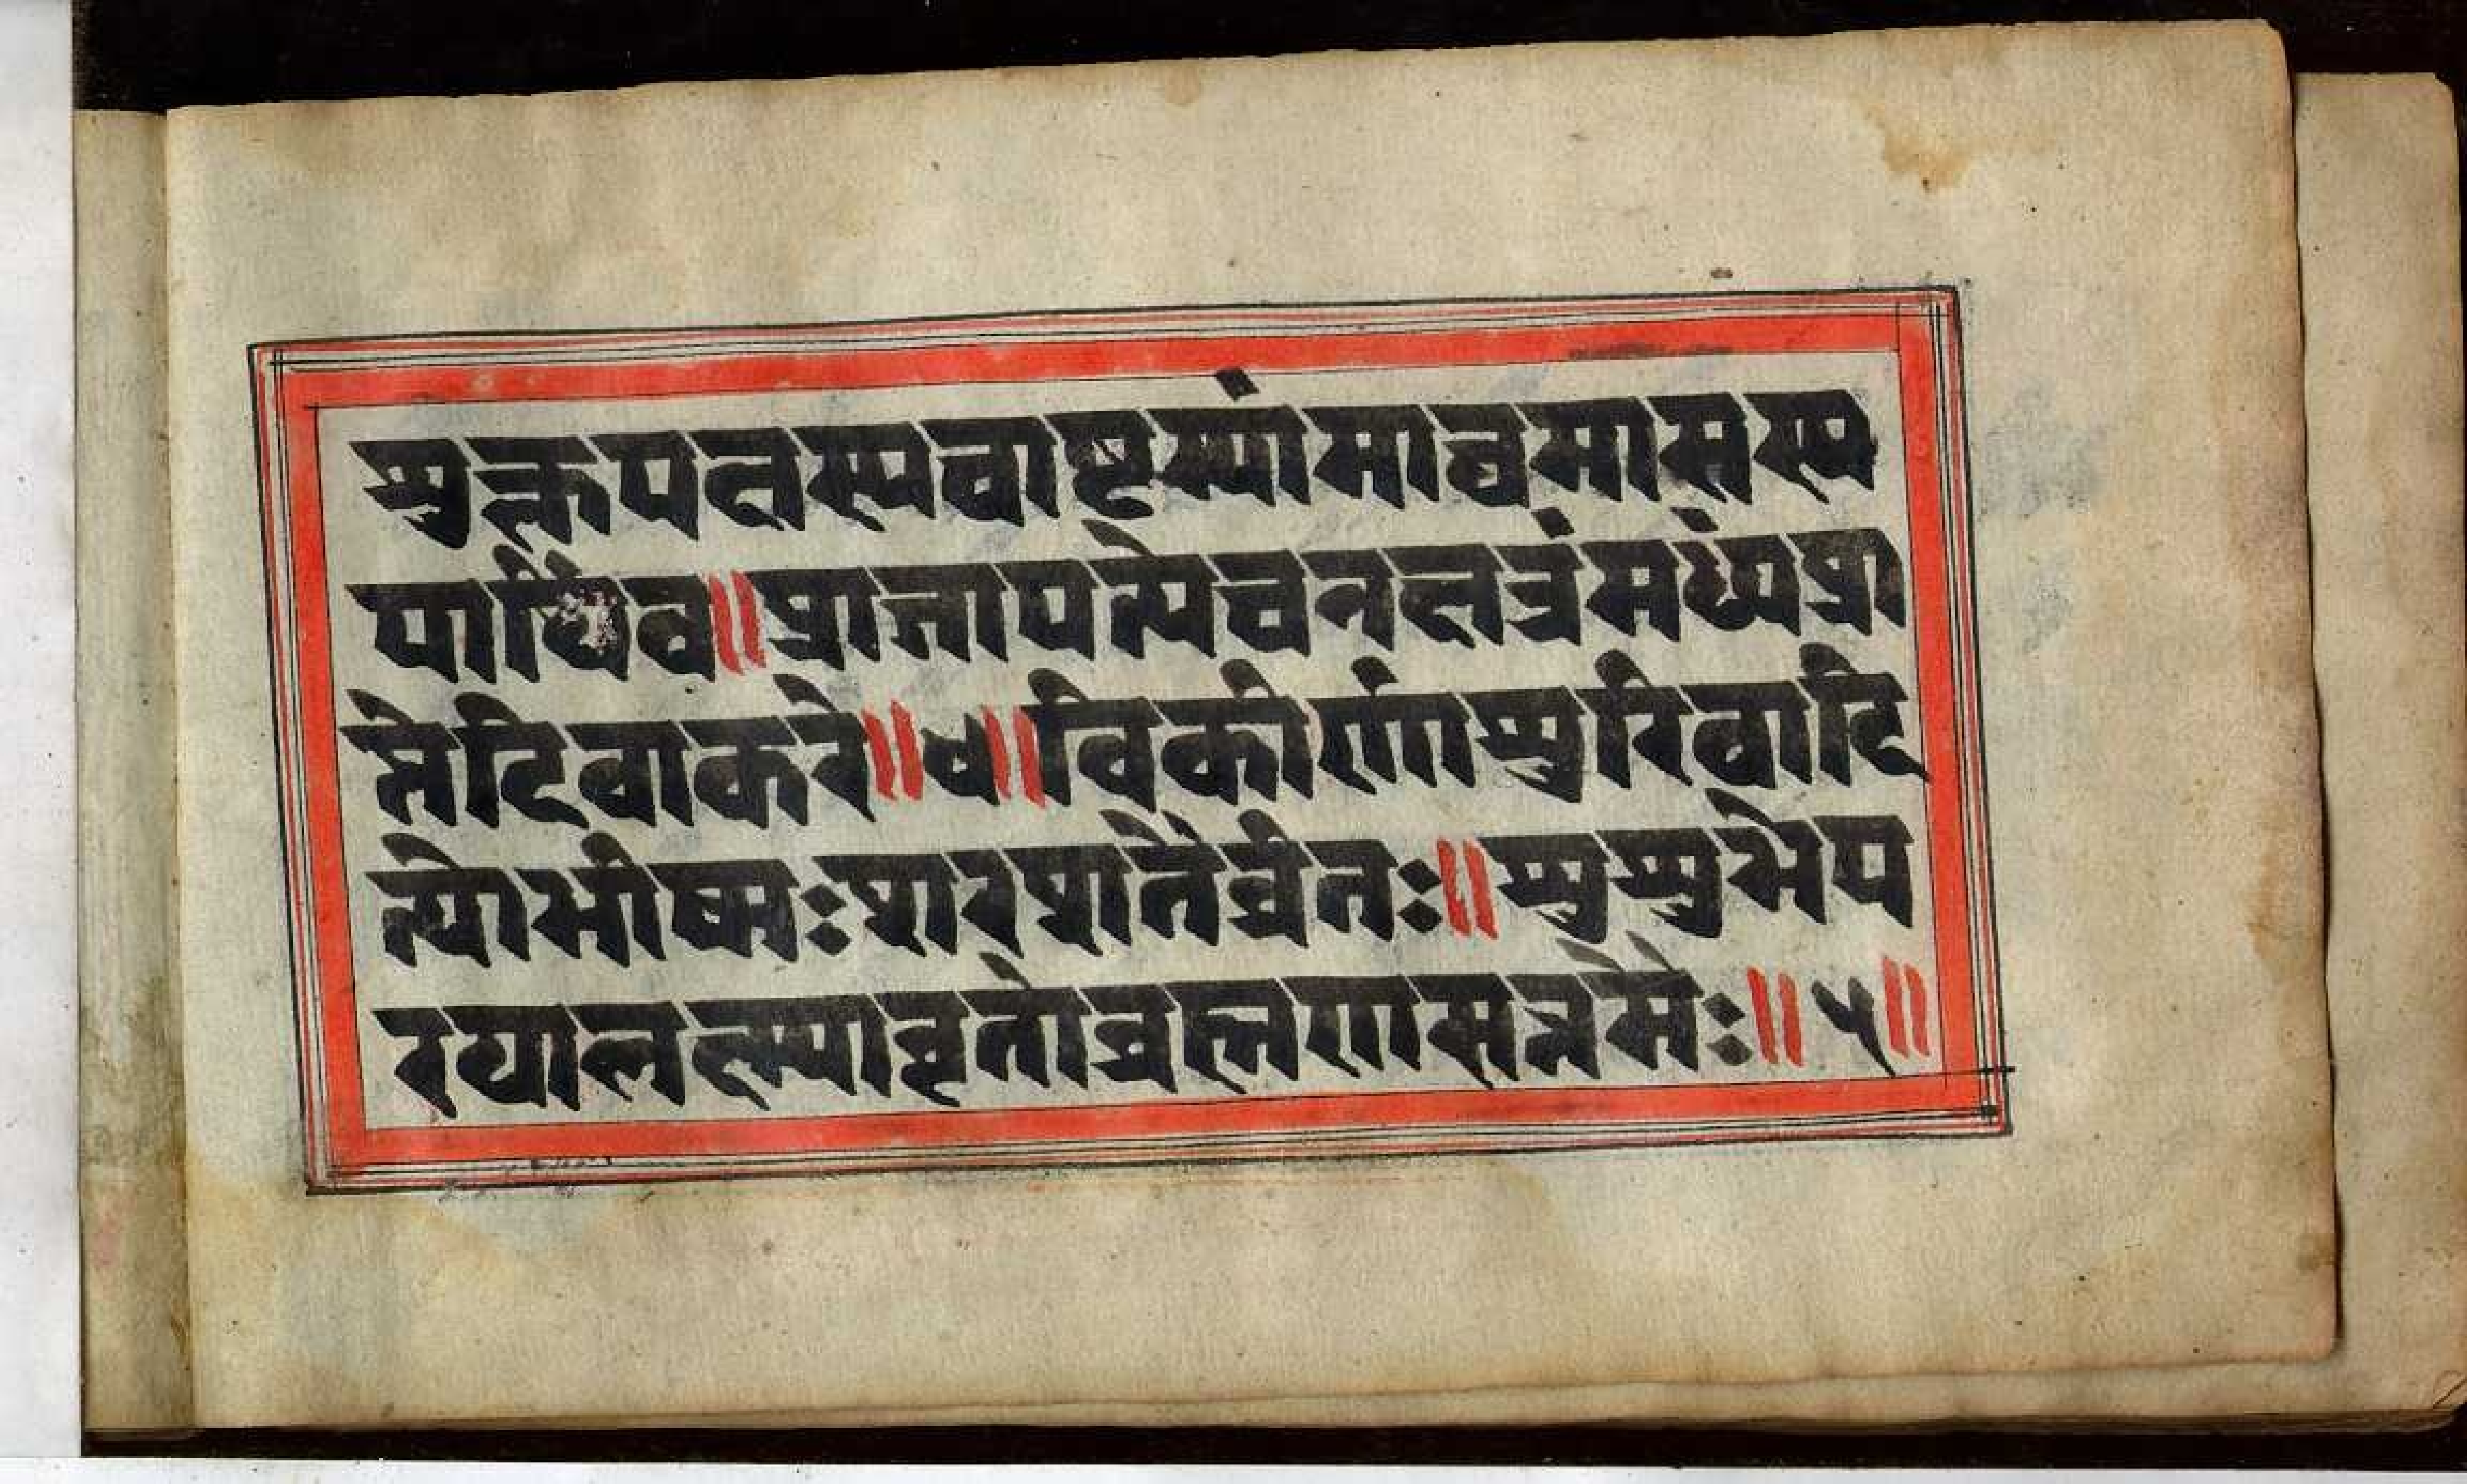 शुक्लपक्षस्यचाष्टम्यांमाघमासस्य
पार्थिव॥प्राजापत्येचनक्षत्रंमध्यंप्रा
प्तेदिवाकरे॥४॥विकीर्णांशुरिवादि
त्योभीष्मःशरशतैर्वृतः॥शुशुभेप
रयालक्ष्म्यावृतोब्राह्मणसत्तमैः॥५॥